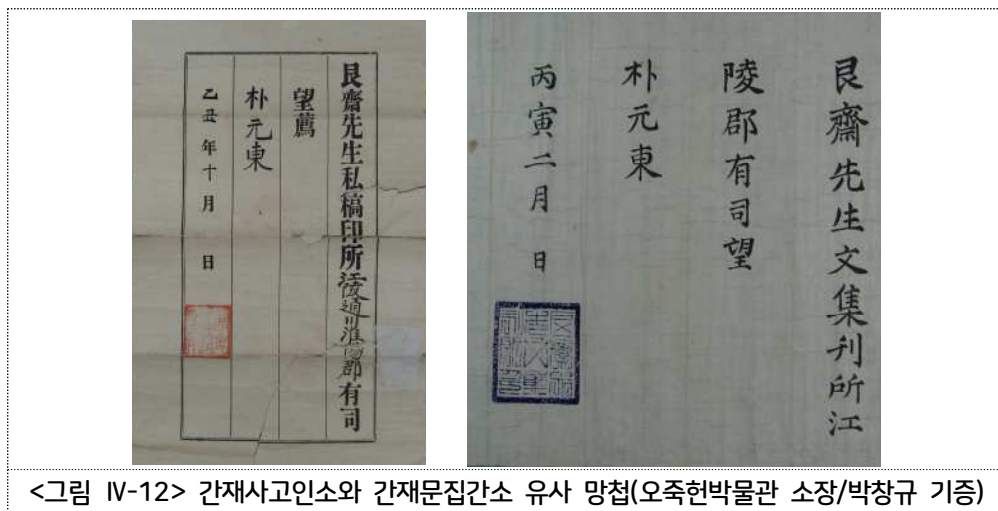 艮齋先生私稿印所江陵通川淮陽郡有司
望薦
朴元東
乙丑年十月 日
艮齋先生文集刊所江
陵郡有司望
朴元東
丙寅二月 日
<그림 Ⅳ-12> 간재사고인소와 간재문집간소 유사 망첩(오죽헌박물관 소장/박창규 기증)